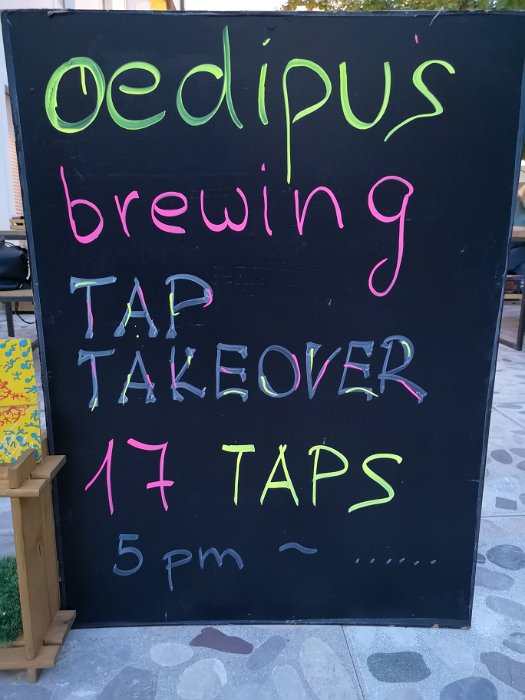 oedipu's
brewing
TAP
TAKEOVER
17 TAPS
5pm ~ ......